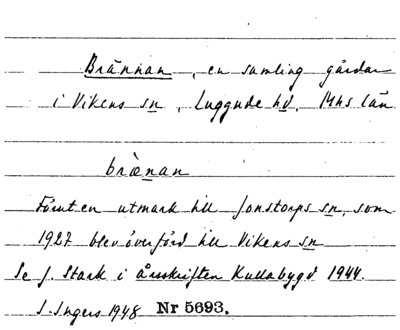 Brännan, en samling gårdar
i Vikens sn, Luggude hd, Mhs län
brænan
Förut en utmark till Jonstorps sn, som
1927 blev överförd till Vikens sn
Se J. Stark i årsskriften Kullabygd 1944.
S. Ingers 1948 Nr 5693.